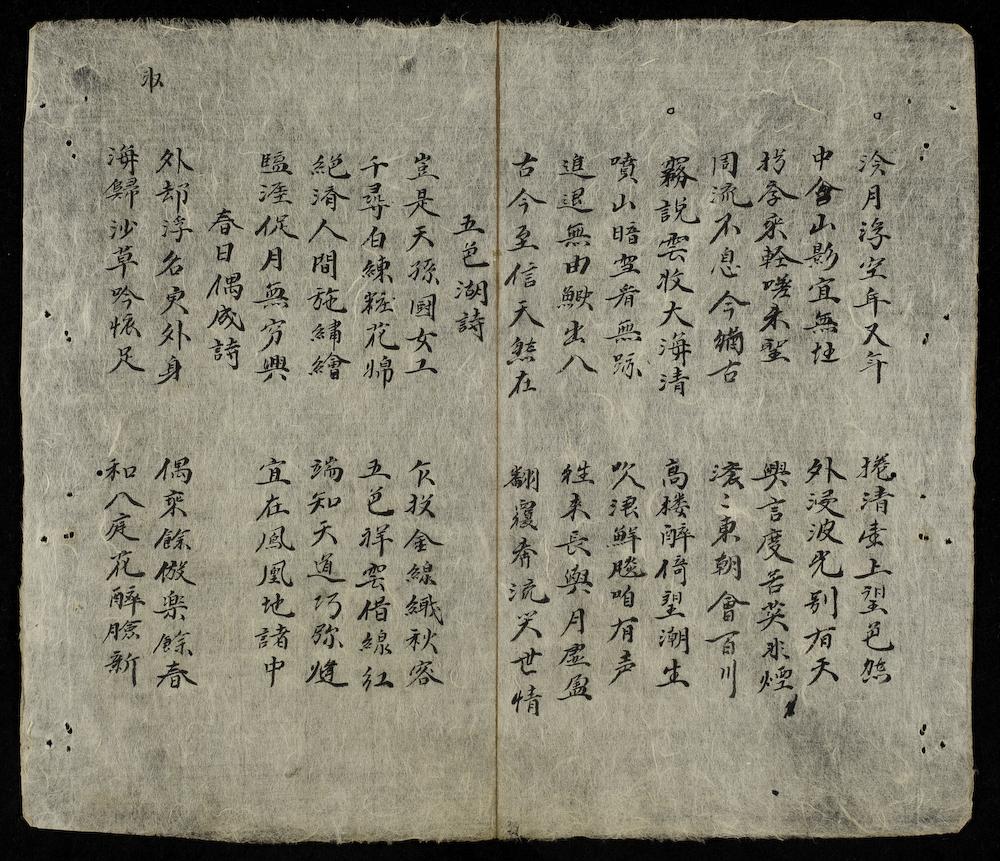 泠月浮空年又年 捲清壷上望邑
中會山影宜無 外浸波光别有天
輕嗟来 興言度若英非煙
周流不息今猶古 滚〻東朝會百川
霧説雲收大海清 髙楼醉倚望潮生
噴山暗雪看無跡 吹浪鮮飈咱有声
進退無由鰍出入 徃来長與月虚盈
古今至信天然在 翻覆奔流笑世情
五色湖詩
豈是天孫國女工 仄投金線織秋容
千尋白練粧花婦 五色祥雲借線紅
絕濟人間施繡繪 端知天道巧弥縫
臨涯促月無穷興 宜在鳳凰地諸中
春日偶成詩
外却浮名更外身 偶乘餘倣楽餘春
海歸沙草吟懷足 和入庭花醉臉新